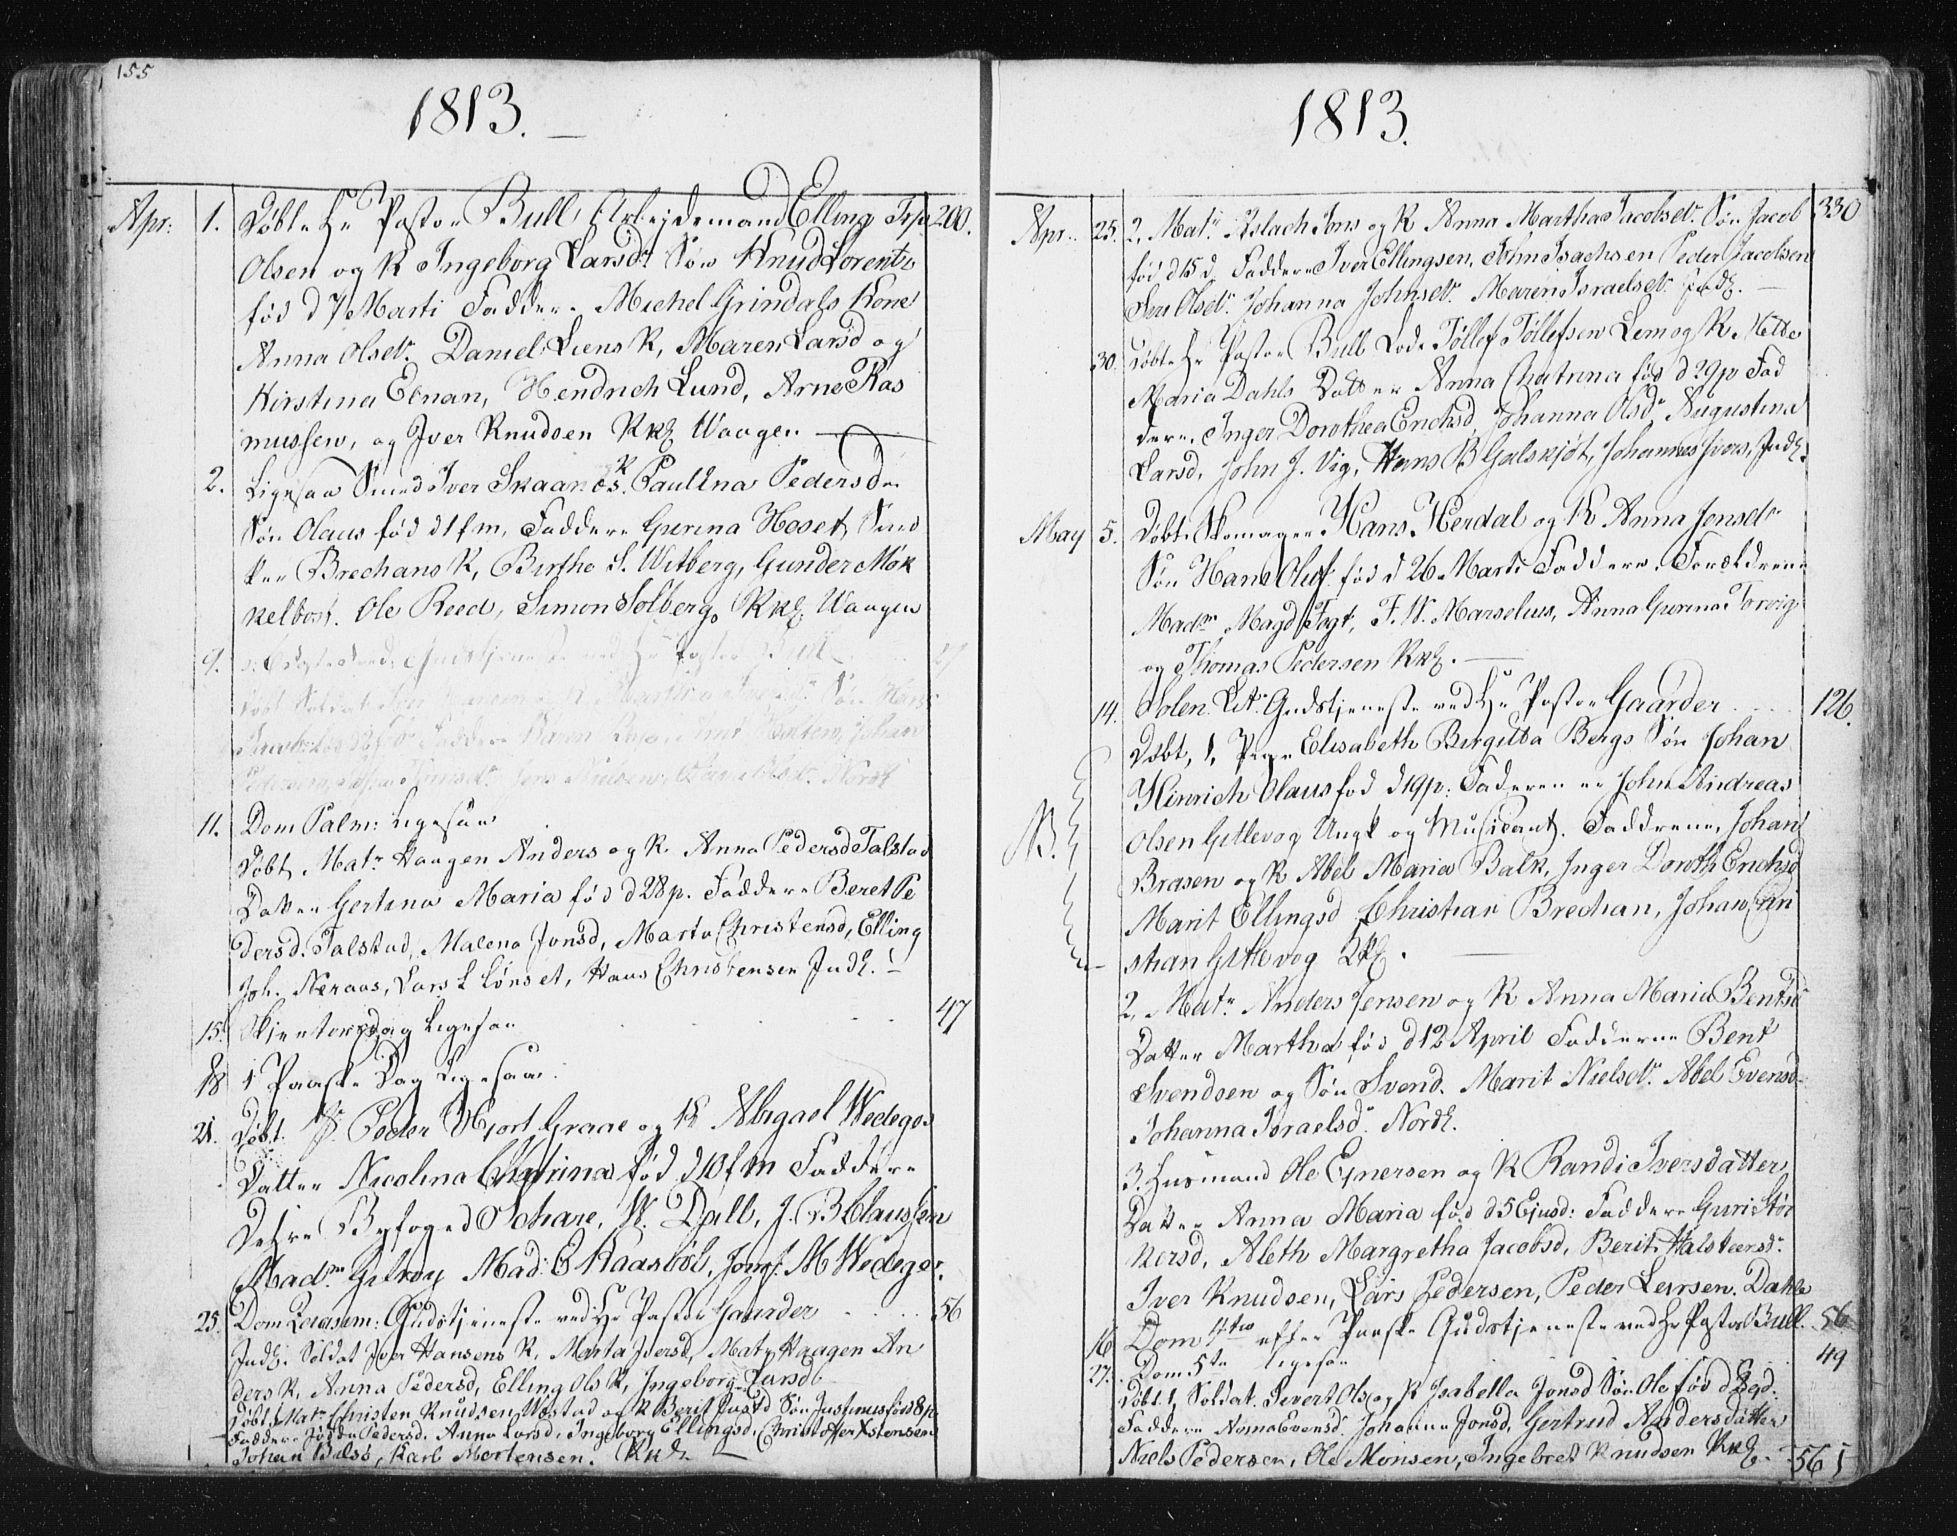 155
1813.
Apr: 1. Døbte Hr Pastor Bull, Arbejdsmand Elling 200.
Olsen og K Ingeborg Larsdr Søn Knud Lorentz
fød d 7 Marti Faddere Michel Grindals Kone
Anna Olsdr. Daniel Liens K, Maren Larsd og
Kirstina Elnan, Hendrich Lund, Arne Ras
mussen, og Iver Knudsen KkE Waagen
2. Ligesaa Smed Iver Skaanes K Paulina Pedersdr
Søn Olaus fød d 1 f m, Faddere Gurina Hoset, Sned
ker Brechans K, Birthe S. Witberg, Gunder Møk
kelbost. Ole Reed, Simon Solberg, KkE Waagen
4.
11. Dom Palm: Ligesaa
Døbt Matr Haagen Anders og K Anna Pedersd Talstad
Datter Gertina Maria fød d 28 p. Faddere Beret Pe
dersd. Talstad, Malena Jonsd, Marta Christensd, Elling
Joh. Neraas, Lars L Lønset, Hans Christensen IndE.
15. Skiertorsdag Ligesaa 47
18 1 Paaske Dag Ligesaa.
21. Døbt Hr. Peder Hjort Graae og K Abigael Wedeges
Datter Nicolina Cathrina fød d 10 f m Faddere
Dehre Byfoged Schare, W. Dall, J. B Claussen
Madm Gelrøy Mad: E Kaasbøl, Jomf. M Wedeger.
25. Dom Quasim: Gudstjeneste ved Hr Pastor Gaarder 56
IndE. Soldat Iver Hansens K, Marta Iversd, Matr Haagen An
ders K, Anna Pedersd, Elling Ols K, Ingeborg Larsd
Døbt 1 Matr Christen Knudsen Westad og K Berit Justd Søn Justinus fød d 8 p
Faddere Pedersd. Anna Larsd, Ingeborg Ellingsd, Christoffer Xstensen
Johan Bulsø, Karl Mortensen. KkE
1813.
Apr. 25. 2, Matr Aslach Jons og K Anna Martha Jacobsdr. Søn Jacob 330
fød d 15 d. Faddere Iver Ellingsen, John Isachsen Peder Jacobsen
Siri Olsdr. Johanna Johnsdr. Maren Israelsdr. IndE.
30. Døbte Hr Pastor Bull Lods Tøllef Tøllefsen Lem og K Mette
Maria Dahls Datter Anna Chatrina fød d 29 p Fad
dere, Inger Dorothea Erichsd, Johanna Olsdr Augustina
Larsd, John J. Vig, Hans B Galskjøt, Johannes Ivers, IndE.
May 5. Døbt Skomager Hans Herdal og K Anna Jensdr
Søn Hans Oluf fød d 26 Marti Faddere Forældrene
Madm Magd Fogt, F. W. Marselius, Anna Gurina Torvig
og Thomas Pedersen KkE.
14. Solen. Lit. Gudstjeneste ved Hr Pastor Gaarder 126.
NB. Døbt, 1, Pige Elisabeth Birgitta Bergs Søn Johan
Hinrich Olaus fød d 19 p: Faderen er John Andreas
Olsen Gitlevog Ungk og Musicant. Faddrene, Johan
Brasen og K Abel Maria Balk, Inger Doroth Erichsd
Marit Ellingsd Christian Brechan, Johan Cri
stian Gitlevog KkE.
2, Matr Anders Jensen og K Anna Maria Bentsd
Datter Martha fød d 12 April Fadderne Bent
Svendsen og Søn Svend. Marit Nielsdr. Abel Evensd
Johanna Israelsd. NordE.
3. Husmand Ole Ejnersen og K Randi Iversdatter,
Datter Anna Maria fød d 5 Ejusd: Faddere Guri Stør
kersd, Aleth Margretha Jacobsd, Berit Halsteensd.
Iver Knudsen, Lars Pedersen, Peder Larsen. Dahle
16. Dom 4te efter Paaske Gudstjeneste ved Hr Pastor Bull. 56
27. Dom 5te ligesaa 49
Døbt 1, Soldat Sivert Ols og K Isabella Jonsd Søn Ole fød d 8 gd.
Faddere Anna Evensd. Johanna Jonsd, Gertrud Andersdatter
Niels Pedersen, Ole Monsen, Ingebret Knudsen KkE. 561